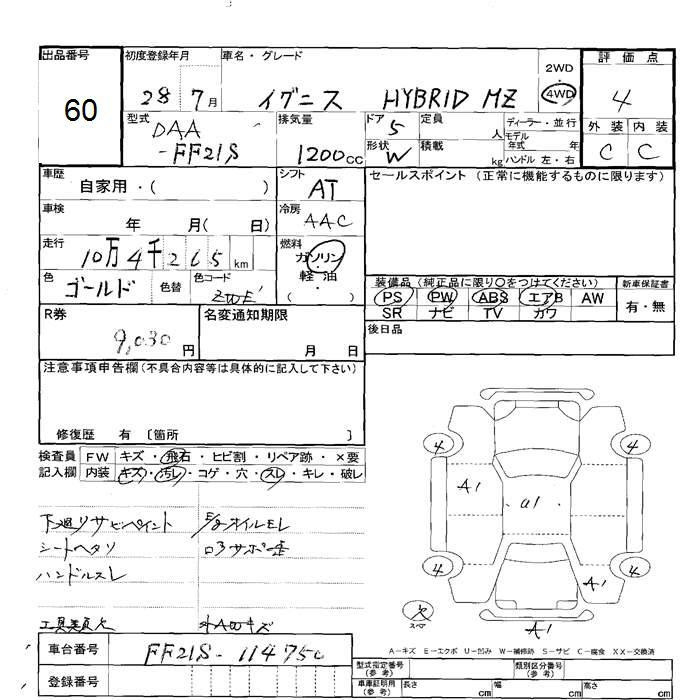 出品番号 初度登録年月 車名・グレード 2WD・4WD 評価点
60 28 7月 イグニス HYBRID MZ 4
型式 DAA-FF21S 排気量 1200cc ドア 5 定員 人 ディーラー・並行 外装 内装
形状 W 積載 kg モデル年式 年 ハンドル 左・右 C C
車歴 自家用・( ) シフト AT セールスポイント (正常に機能するものに限ります)
車検 年 月( 日) 冷房 AAC
走行 10万4千265km 燃料 ガソリン・軽油・( )
色 ゴールド 色替 色コード
装備品 (純正品に限り○をつけてください) 新車保証書
PS PW ABS エアB AW 有・無
SR ナビ TV カワ
R券 9,030円 名変通知期限 月 日 後日品
注意事項申告欄 (不具合内容等は具体的に記入して下さい)
修復歴 有 〔箇所 〕
検査員記入欄 FW キズ・飛石・ヒビ割・リペア跡・×要
内装 キズ・汚レ・コゲ・穴・スレ・キレ・破レ
下廻りサビペイント E/gオイルモレ
シートヘタリ
ハンドルスレ
工具差欠 外A01キズ
4 4
A1 a1
4 4
A1
欠 スペア A1
A-キズ E-エクボ U-凹み W-補修跡 S-サビ C-腐食 XX-交換済
車台番号 FF21S-114750
登録番号
型式指定番号 (参考) 類別区分番号 (参考)
車庫証明用 (参考) 長さ cm 幅 cm 高さ cm